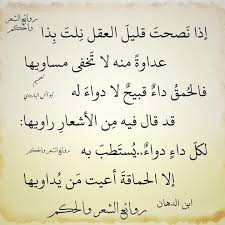 روائع الشعر والحكم
إذا نَصحتَ قليلَ العقل نِلتَ بِذا
عداوةً منه لا تَخفى مساويها
فالحُمقُ داءٌ قبيحٌ لا دواءَ له
قد قال فيه مِن الأشعارِ راويها:
لكلّ داءٍ دواءٌ..يُستطَبّ به
روائع الشعر والحكم
إلا الحماقةَ أعيتْ مَن يُداويها
ابن الدهان
روائع الشعر والحكم